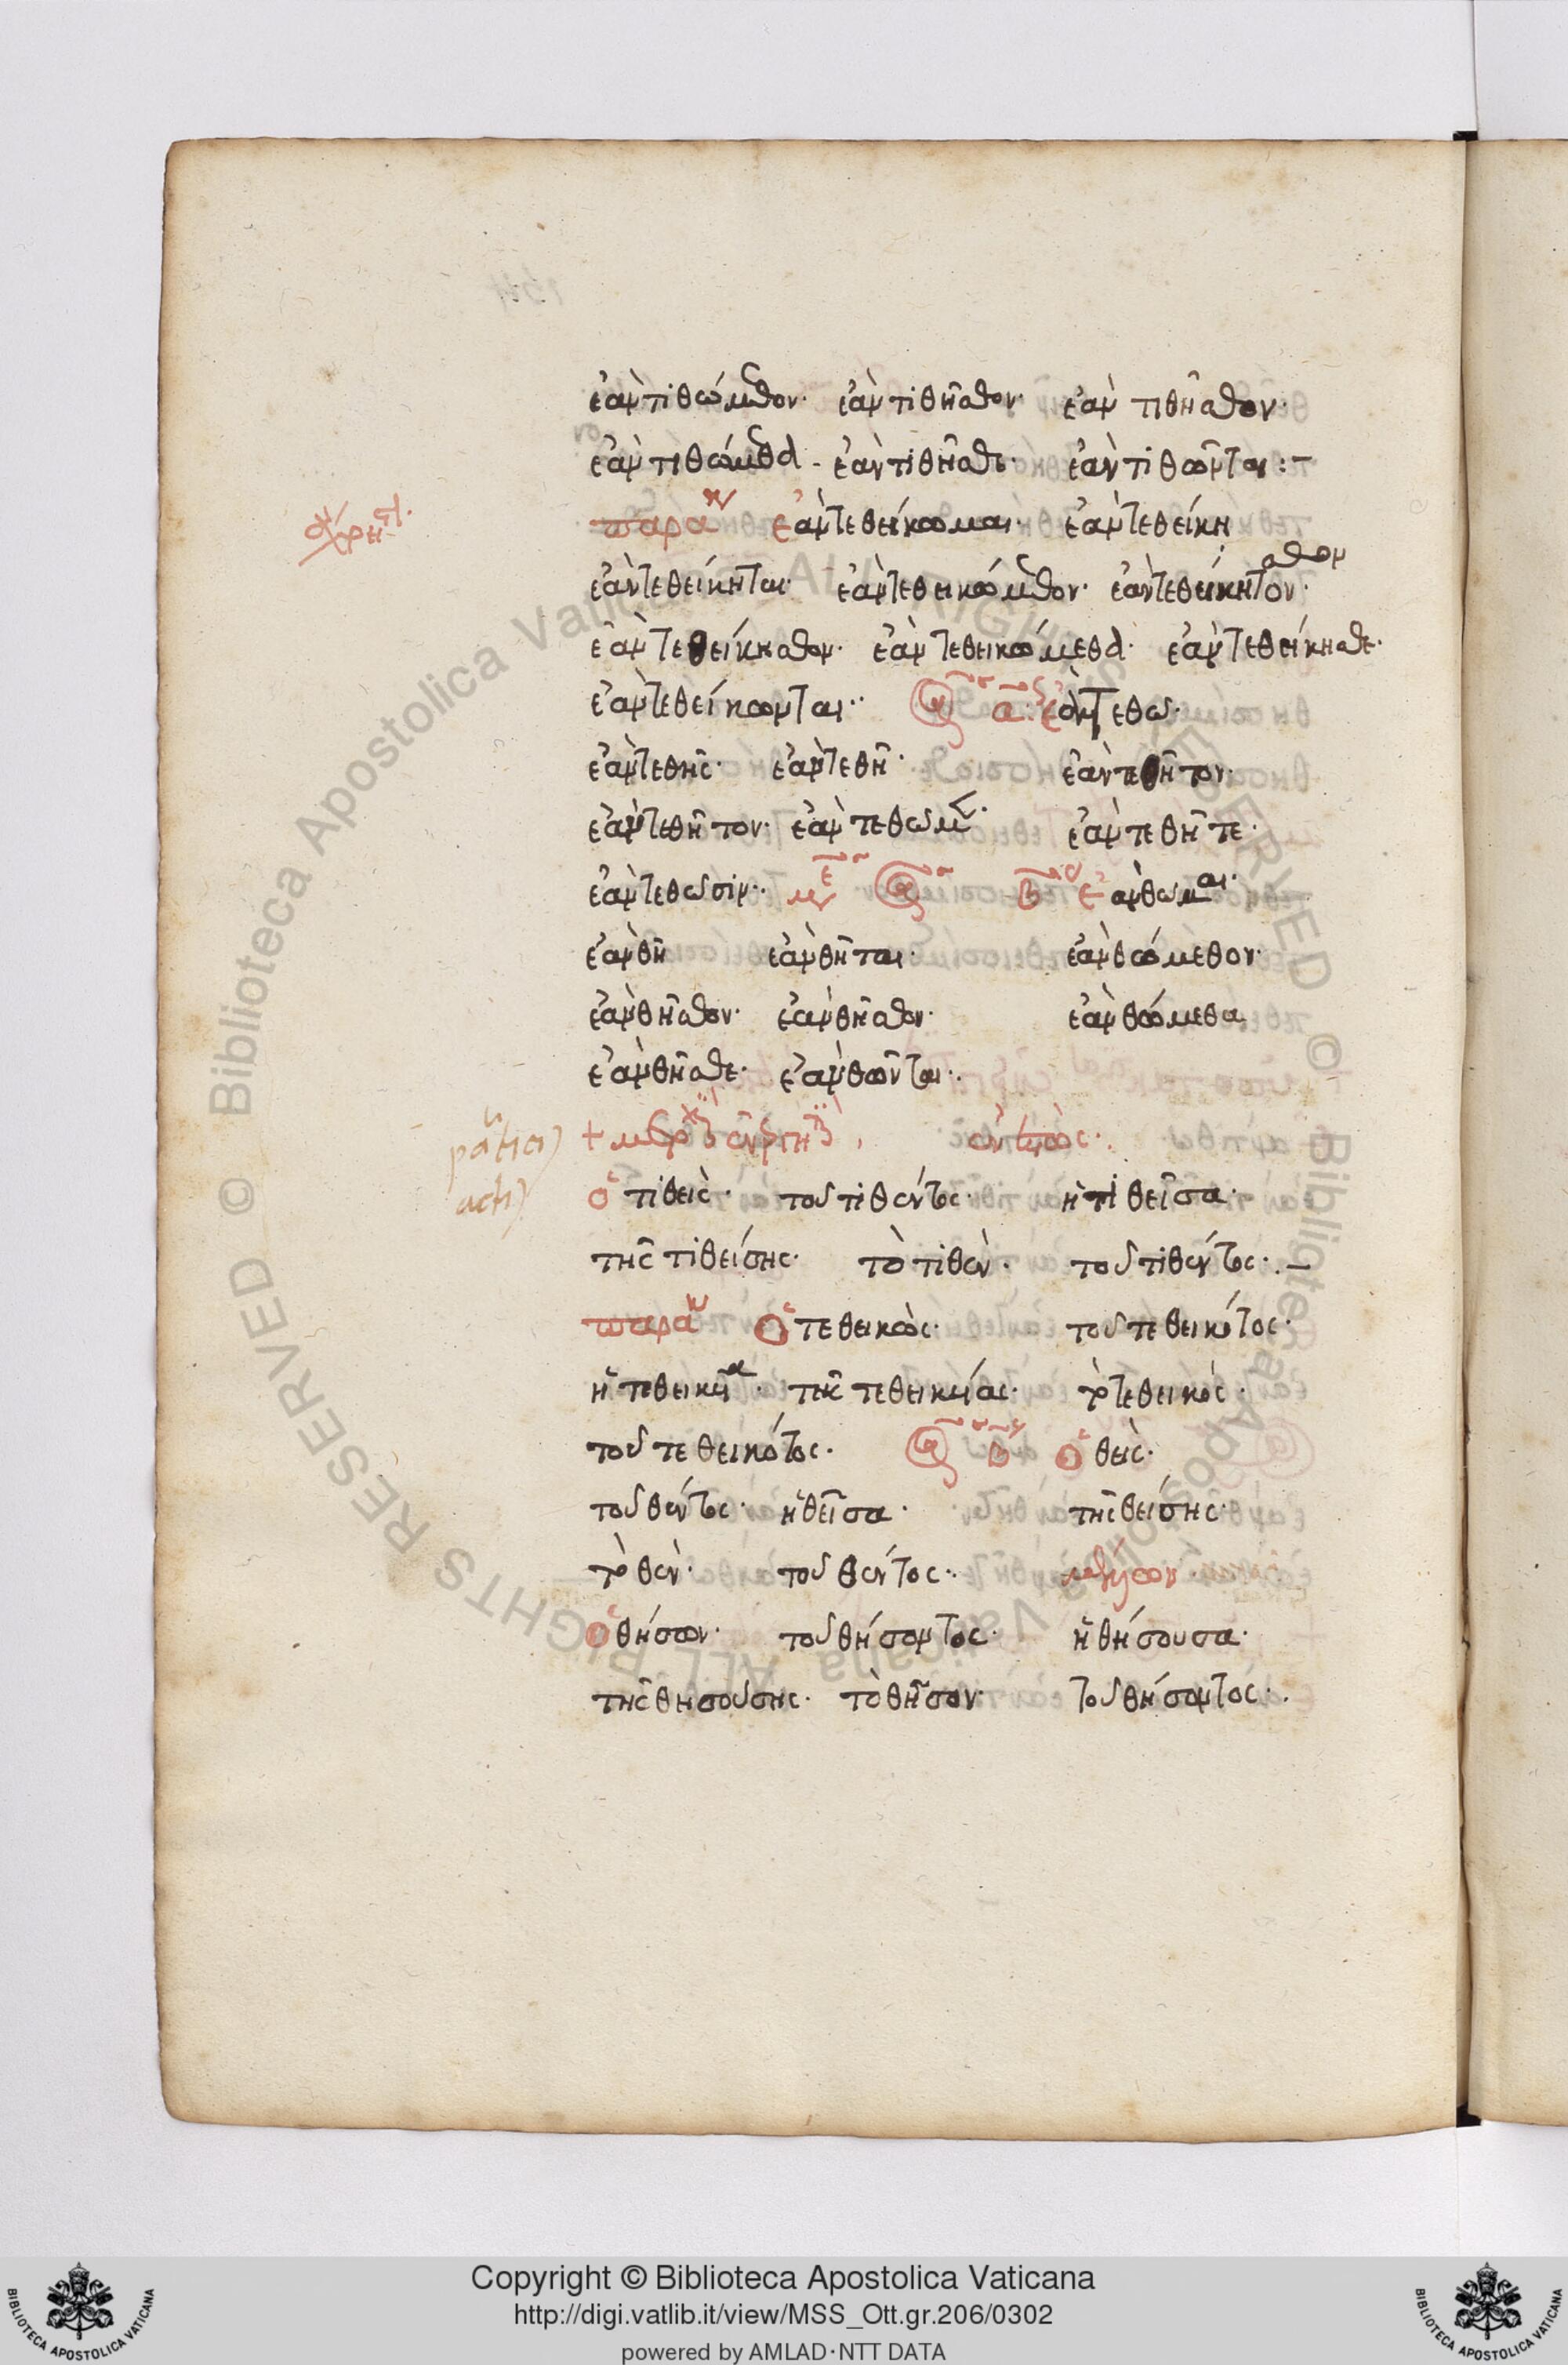 ἐὰν τιθώμεθον· ἐὰν τιθῆσθον· ἐὰν τιθῆσθον·
ἐὰν τιθώμεθα· ἐὰν τιθῆσθε· ἐὰν τιθῶνται:–
παρακ ἐὰν τεθείκωμαι· ἐὰν τεθείκη
ἐὰν τεθείκηται· ἐὰν τεθεικώμεθον· ἐὰν τεθείκητον·
σθον
ἐὰν τεθείκησθον· ἐὰν τεθεικώμεθα· ἐὰν τεθείκησθε·
ἐὰν τεθείκωνται·· α ἐὰν τεθω·
ἐὰν τεθῆς· ἐὰν τεθῆ· ἐὰν τεθῆτον·
ἐὰν τεθῆτον· ἐὰν τεθωμεν· ἐὰν τεθῆτε·
ἐὰν τεθωσιν·· με β ἐὰν θωμαι·
ἐὰν θῆ ἐὰν θῆται· ἐὰν θώμεθον·
ἐὰν θῆσθον· ἐὰν θῆσθον· ἐὰν θώμεθα
ἐὰν θῆσθε· ἐὰν θῶνται··
ὁ τιθεὶς· τοῦ τιθέντος· ἡ τιθεῖσα·
τῆς τιθείσης· τὸ τιθὲν· τοῦ τιθέντος·.–
παρακ Ὁ τεθεικὼς· τοῦ τεθεικότος·
ἡ τεθεικῦα· τῆς τεθεικυίας· τὸ τεθεικὸς·
τοῦ τεθεικότος· β Ὁ θεὶς·
τοῦ θέντος· ἡ θεῖσα· τῆς θείσης·
τὸ θὲν· τοῦ θέντος·· μέλλων
Ὁ θήσων· τοῦ θήσοντος· ἡ θήσουσα·
τῆς θησούσης· τὸ θῆσον· τοῦ θήσοντος·.
Copyright © Biblioteca Apostolica Vaticana
http://digi.vatlib.it/view/MSS_Ott.gr.206/0302
powered by AMLAD·NTT DATA